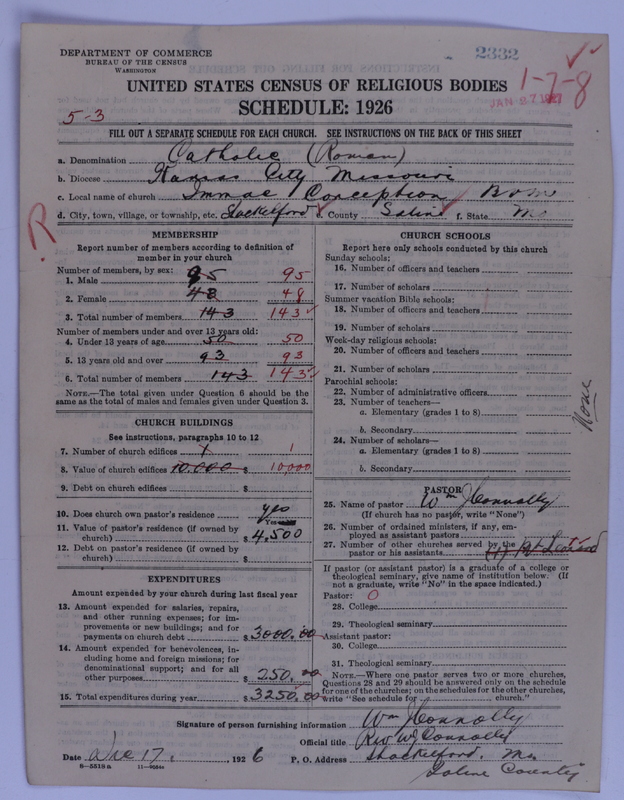 DEPARTMENT OF COMMERCE
BUREAU OF THE CENSUS
WASHINGTON
2332
1-7-8
JAN 27 1927
UNITED STATES CENSUS OF RELIGIOUS BODIES
SCHEDULE: 1926
5-3
FILL OUT A SEPARATE SCHEDULE FOR EACH CHURCH. SEE INSTRUCTIONS ON THE BACK OF THIS SHEET
a. Denomination Catholic (Roman)
b. Diocese Kansas City Missouri
c. Local name of church Immac Conception
d. City, town, village, or township, etc. Shackelford County Saline f. State Mo
R
MEMBERSHIP
Report number of members according to definition of
member in your church
Number of members, by sex:
1. Male 95 95
2. Female 48 48
3. Total number of members 143 143
Number of members under and over 13 years old:
4. Under 13 years of age 50 50
5. 13 years old and over 93 93
6. Total number of members 143 143
NOTE.—The total given under Question 6 should be
same as the total of males and females given under Question 3.
CHURCH BUILDINGS
See instructions, paragraphs 10 to 12
7. Number of church edifices 1 1
8. Value of church edifices 10.000 $ 10000
9. Debt on church edifices $
10. Does church own pastor's residence yes
Yes
11. Value of pastor's residence (if owned by
church) $ 4,500
12. Debt on pastor's residence (if owned by
church) $
EXPENDITURES
Amount expended by your church during last fiscal year
13. Amount expended for salaries, repairs,
and other running expenses; for im-
provements or new buildings; and for
payments on church debt $ 3000.00
14. Amount expended for benevolences, in-
cluding home and foreign missions; for
denominational support; and for all
other purposes $ 250.00
15. Total expenditures during year $ 3250.00
CHURCH SCHOOLS
Report here only schools conducted by this church
Sunday schools:
16. Number of officers and teachers
17. Number of scholars
Summer vacation Bible schools:
18. Number of officers and teachers
19. Number of scholars
Week-day religious schools:
20. Number of officers and teachers
21. Number of scholars
Parochial schools:
22. Number of administrative officers
23. Number of teachers—
a. Elementary (grades 1 to 8)
b. Secondary
24. Number of scholars—
a. Elementary (grades 1 to 8)
b. Secondary
None
PASTOR
25. Name of pastor Wm J Connolly
(If church has no pastor, write "None")
26. Number of ordained ministers, if any, em-
ployed as assistant pastors
27. Number of other churches served by the
pastor or his assistants (1)
If pastor (or assistant pastor) is a graduate of a college or
theological seminary, give name of institution below. (If
not a graduate, write "No" in the space indicated.)
Pastor: 0
28. College
29. Theological seminary
Assistant pastor:
30. College
31. Theological seminary
NOTE.—Where one pastor serves two or more churches,
Questions 28 and 29 should be answered only on the schedule
for one of the churches; on the schedules for the other churches,
write "See schedule for church."
Signature of person furnishing information Wm J Connolly
Official title Rev W J Connolly
Date Dec 17, 1926 P. O. Address Shackelford, Mo
Saline County